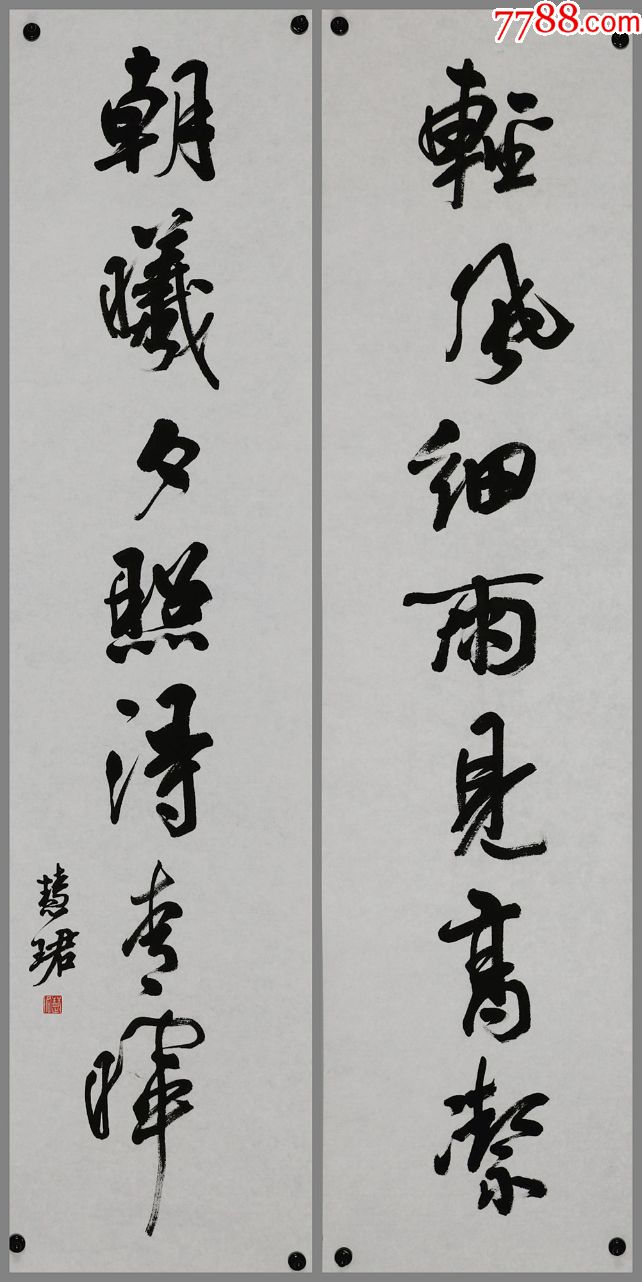 7788.com
輕風細雨見高潔
朝曦夕照得春暉
慧珺